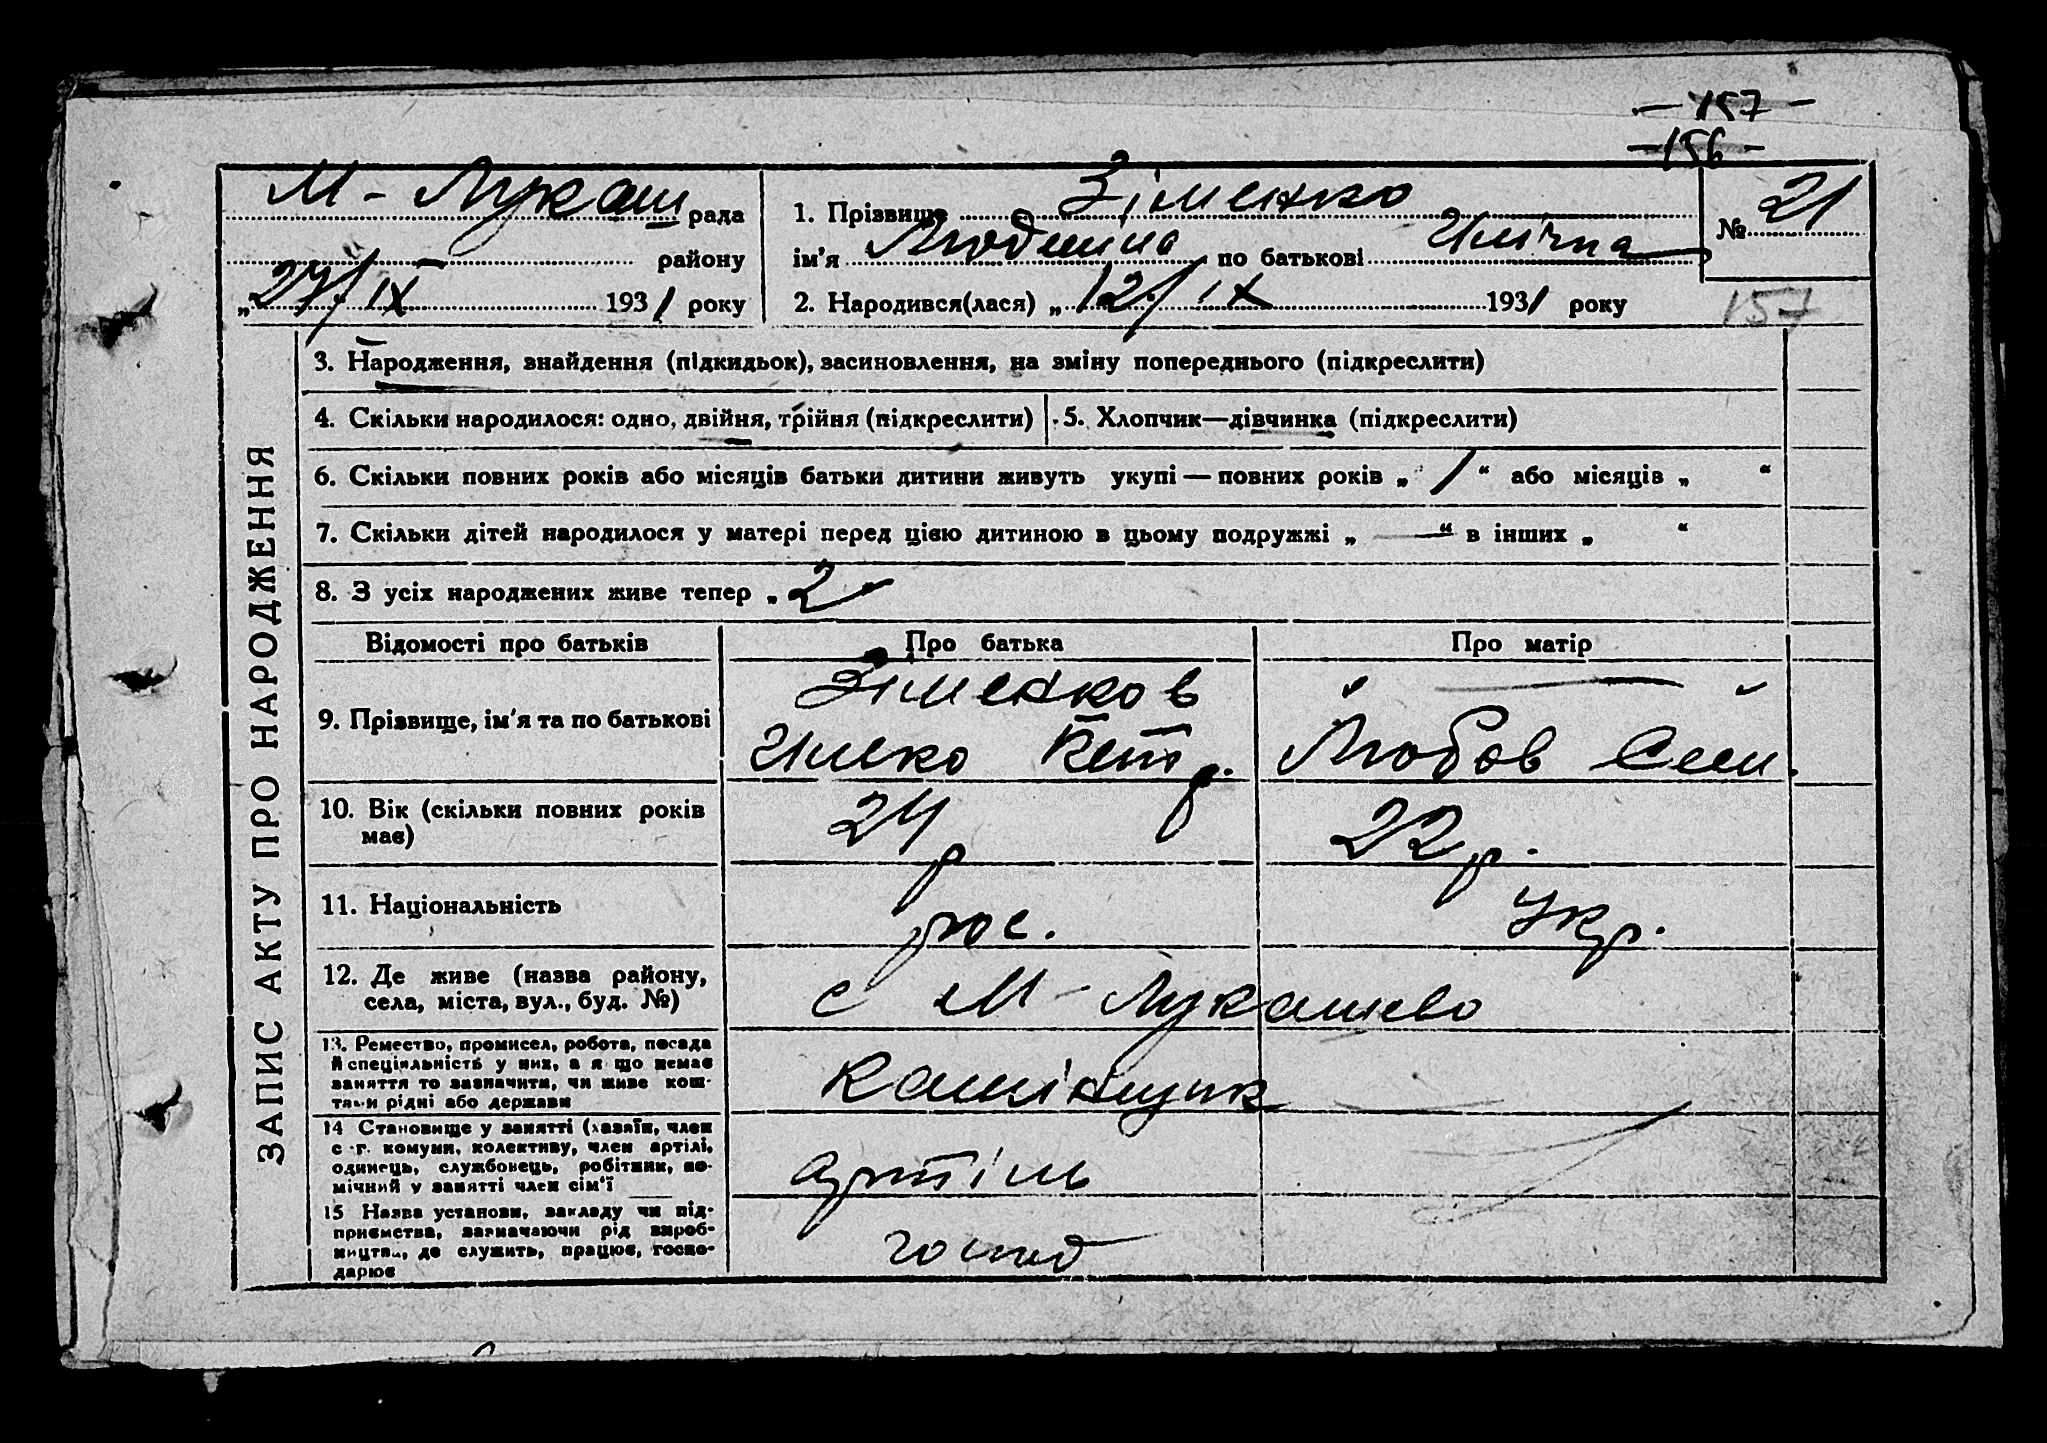 — 157 —
— 156 —
М - Лукаш рада
району
„27/ IX 1931 року
1. Прізвище Зіменко
ім'я Людмила по батькові Іллічна
2. Народився(лася) „12/ IX 1931 року
№ 21
157
ЗАПИС АКТУ ПРО НАРОДЖЕННЯ
3. Народження, знайдення (підкидьок), засиновлення, на зміну попереднього (підкреслити)
4. Скільки народилося: одно, двійня, трійня (підкреслити)
5. Хлопчик—дівчинка (підкреслити)
6. Скільки повних років або місяців батьки дитини живуть укупі — повних років „ 1 “ або місяців „ “
7. Скільки дітей народилося у матері перед цією дитиною в цьому подружжі „ — “ в інших „ “
8. З усіх народжених живе тепер „ 2
Відомості про батьків Про батька Про матір
9. Прізвище, ім'я та по батькові
Зіменков
Илько Петр. Любов Сем.
10. Вік (скільки повних років має) 24 р 22 р.
11. Національність рос. Укр.
12. Де живе (назва району, села, міста, вул., буд. №)
с М - Лукашево
13. Ремество, промисел, робота, посада
й спеціяльність у них, а якщо немає
заняття то зазначити, чи живе кош-
тами рідні або держави
14 Становище у занятті (хазяїн, член
с.-г. комуни, колективу, член артілі,
одинець, службовець, робітник, по-
мічний у занятті член сім'ї
артіль
15 Назва установи, закладу чи під-
приємства, зазначаючи рід вироб-
ництва, де служить, працює, госпо-
дарює